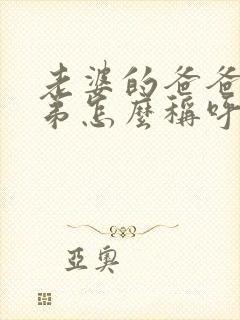 老婆的爸爸
弟怎麼稱呼
亞奧